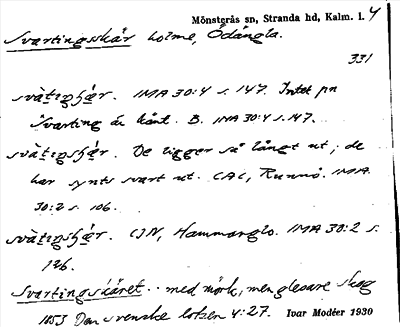 Mönsterås sn, Stranda hd, Kalm. l. 4
Svartingsskär holme, Ödängla.
331
svàtingʃær. IMA 30:4 s. 147. Intet pn
Svarting är känt. B. IMA 30:4 s. 147.
svàtingʃær. De ligger så långt ut, de
har synts svart ut. CAC, Runnö. IMA
30:2 s. 106.
svàtingʃær. CJN, Hammarglo. IMA 30:2 s.
126.
Svartingsskäret .. med mörk, men glesare skog
1853 Den svenske lotsen 4:27. Ivar Modéer 1930